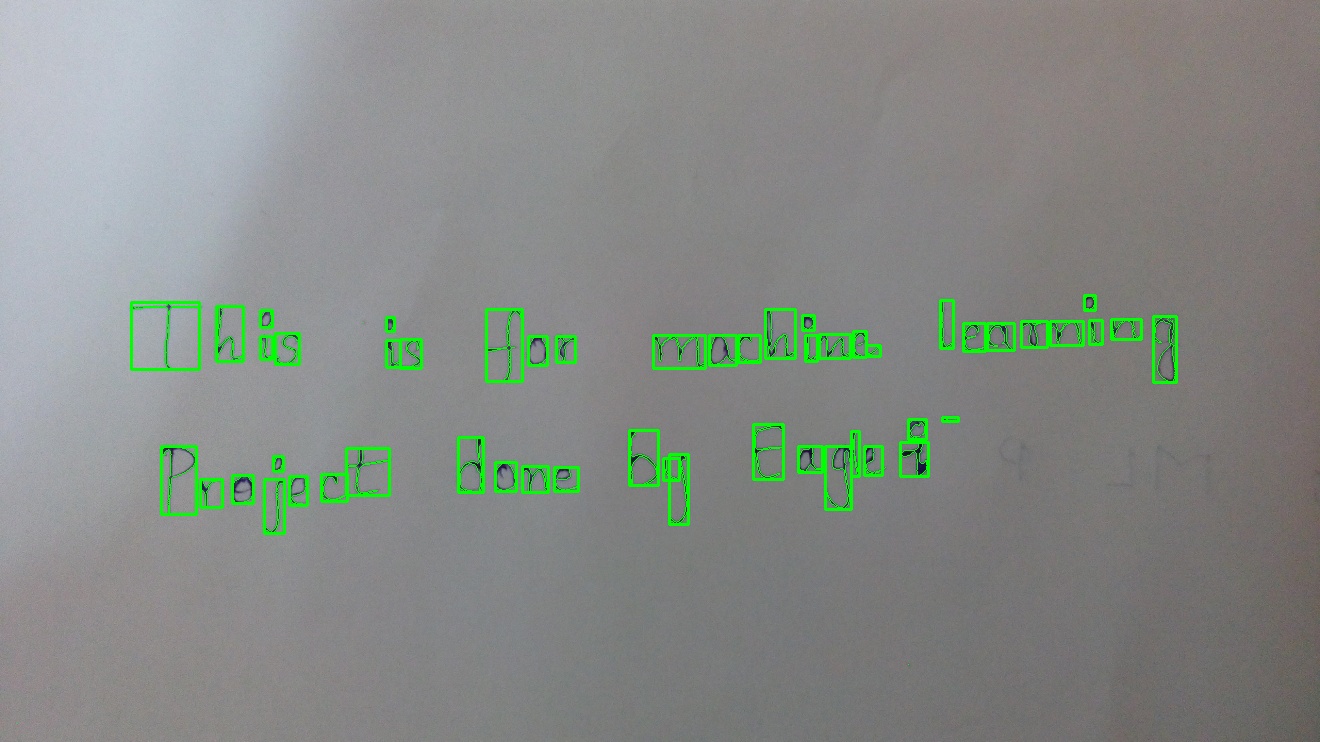 This is for machine learning
Project done by Eagle